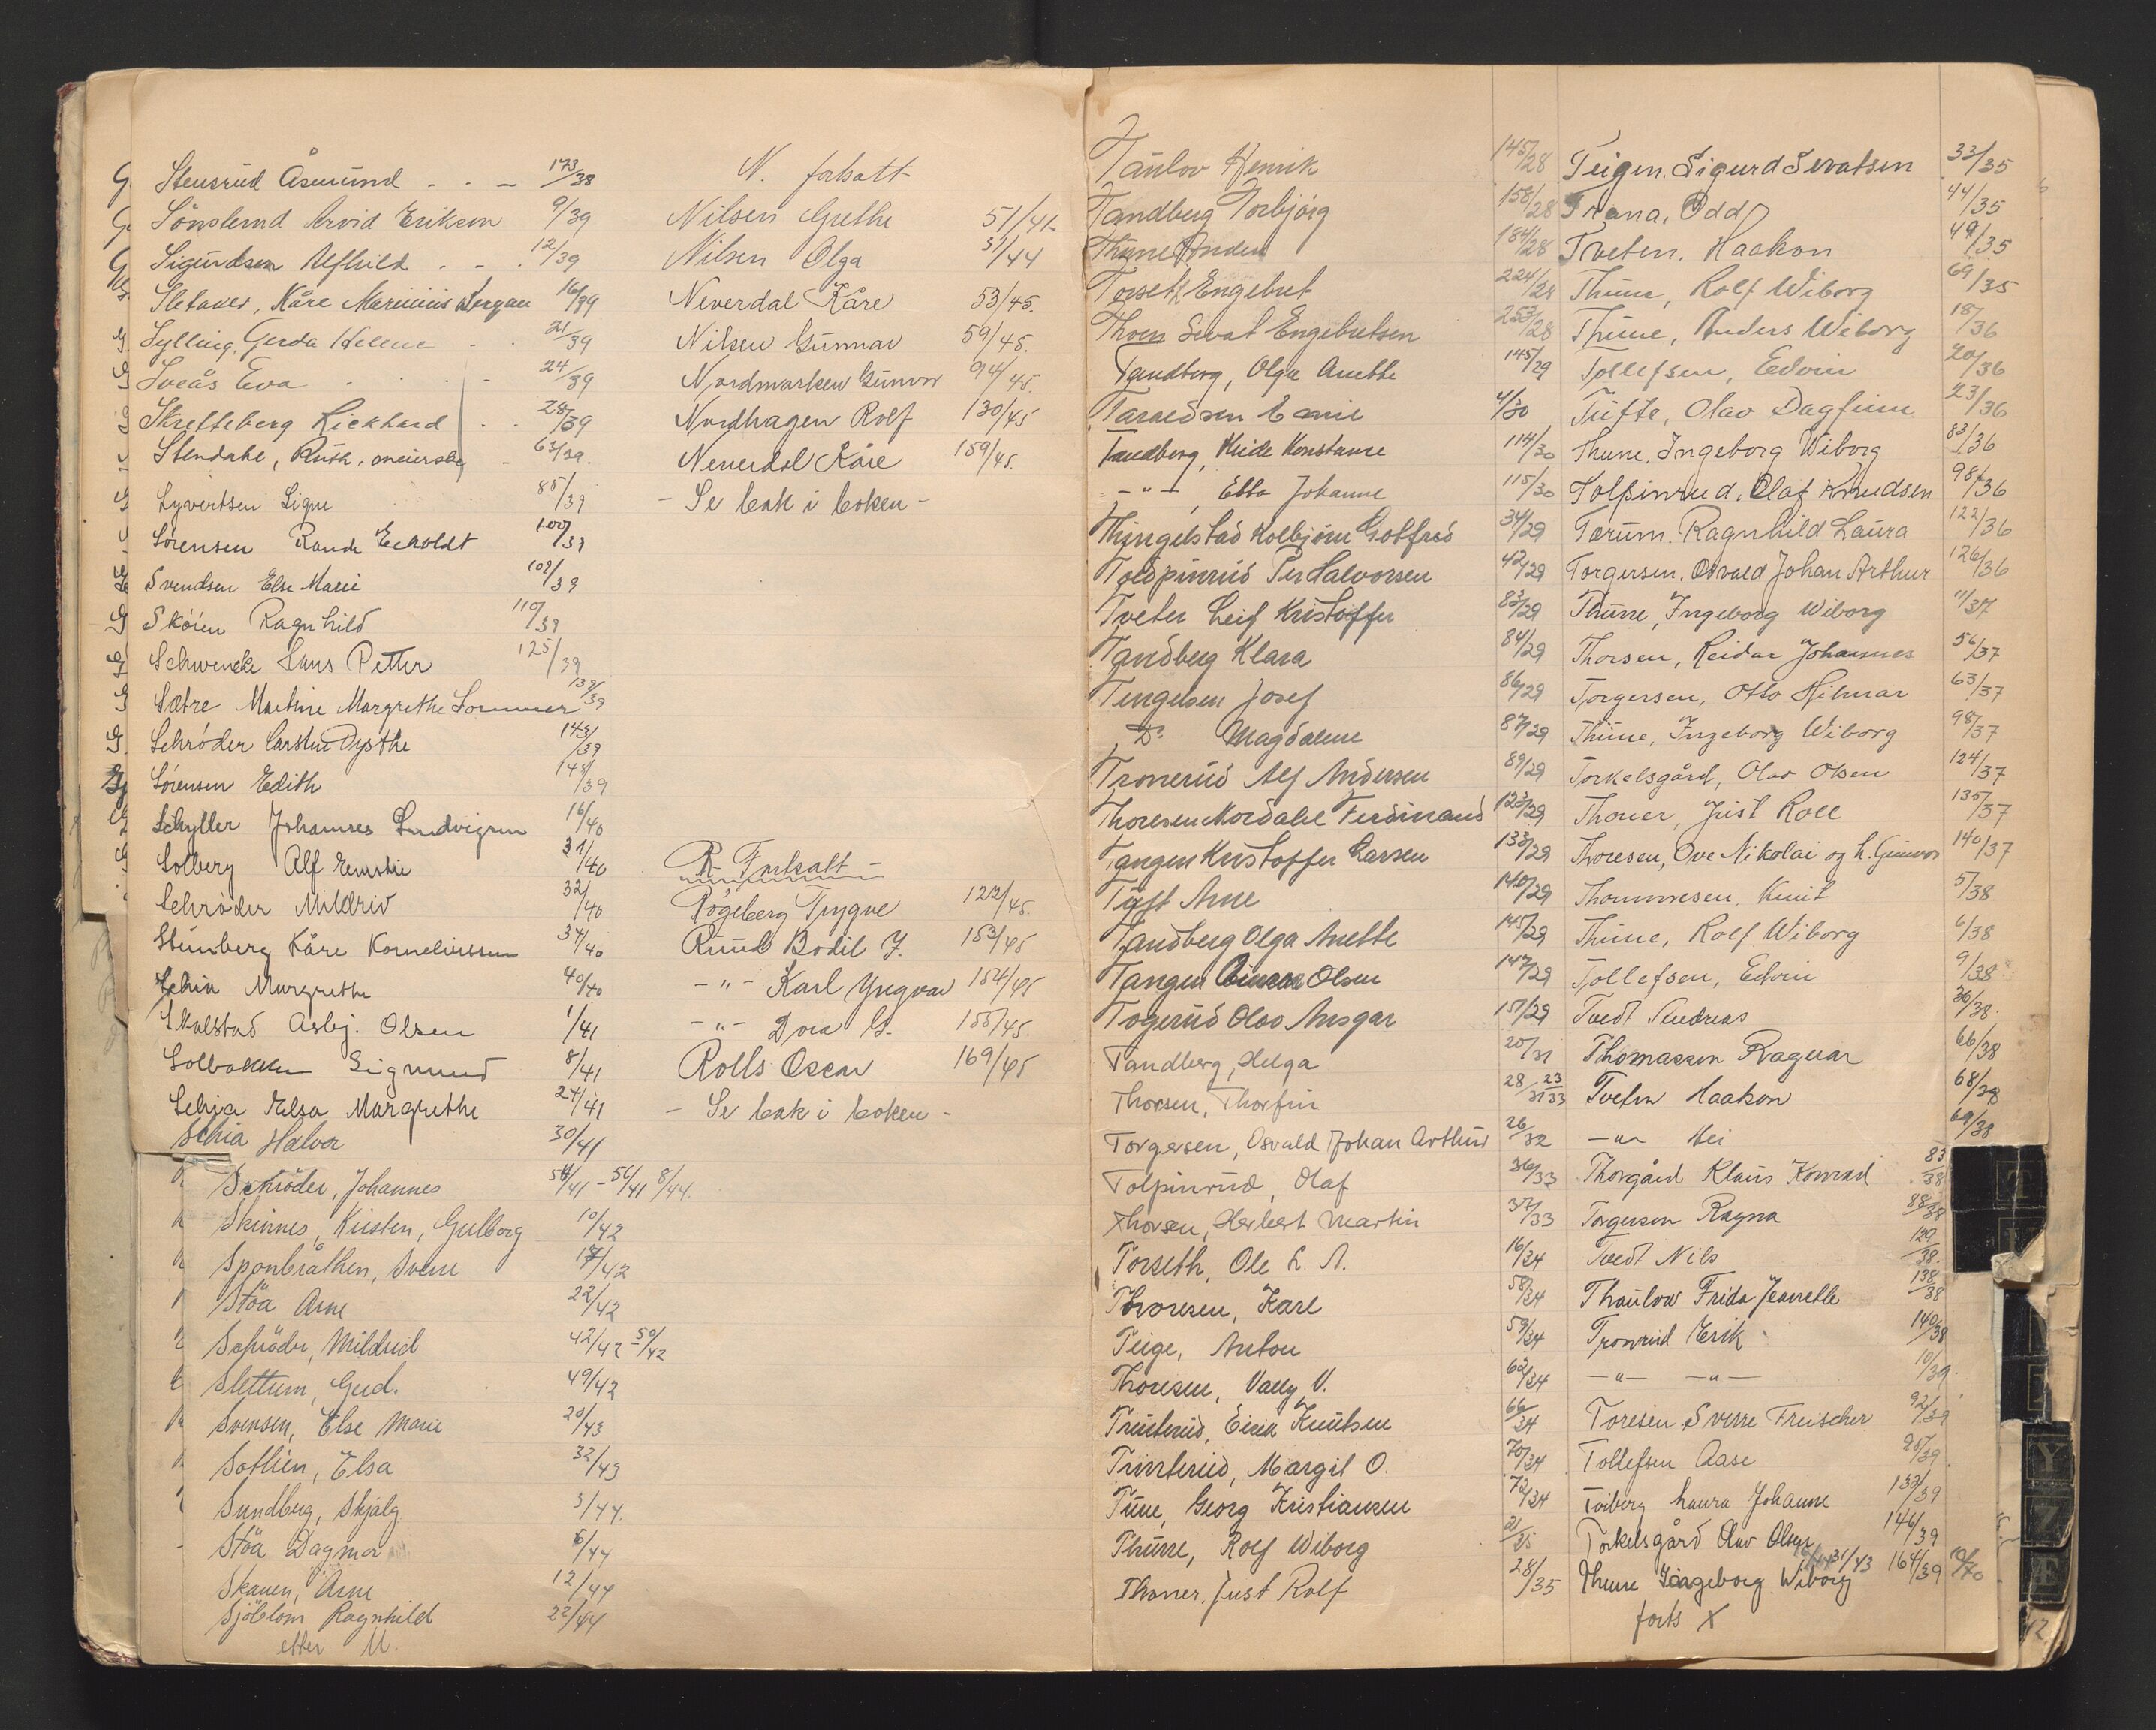 Stensrud Åsmund - - - 173/38
Sönsterud Arvid Eriksen 9/39
Sigurdsen Alfhild - - . 12/39
Sletaker, Kåre Marinius 16/39
Sylling, Gerda Helene - - 21/39
Sveås Eva - - - - 24/39
Skretteberg Rickhard . . 28/39
Stendahl, Ruth, - 63/39.
Syvertsen Signe 85/39
Sørensen Eckoldt 100/39
Svendsen Else Marie 109/39
Skøien Ragnhild 110/39
Schwencke Hans Petter 125/39
Sætre Martine Margrethe Sommer 139/39
Schrøder Carsten Dysthe 143/39
Sørensen Edith 148/39
Schyller Johannes Ludvigsen 16/40
Solberg Alf 31/40
Schrøder Mildrid 32/40
Stenberg Kåre Korneliussen 34/40
Schia Margrethe 40/40
Skalstad Asbj. Olsen 1/41
Solbakken Sigmund 8/41
Schia Elsa Margrethe 24/41
Schia Halvor 30/41
Schröder, Johannes 54/41 - 56/41 8/44.
Skinnes, Kirsten, Gulborg 10/42
Sponbråthen, Svein 17/42
Stöa Arne 22/42
Schröder, Mildrid 42/42 50/42
Slettum, Gud. 49/42
Svensen, Else Marie 20/43
Sothien, Elsa 32/43
Sundberg, Skjalg 3/44.
Stöa Dagmar 6/44
Skauen, Arne 12/44
Sjöblom Ragnhild 22/44
etter U.
N. fortsatt
Nilsen Grethe 51/41
Nilsen Olga 31/44
Neverdal Kåre 53/45.
Nilsen Gunnar 59/45.
Nordmarken Gunvor 94/45.
Nordhagen Rolf 130/45
Neverdal Kåre 159/45.
- Se bak i boken -
R. Fortsatt -
Rogeberg Trygve 122/45.
Ruud Bodil J. 153/45
- " - Karl Yngvar 154/45
- " - Dora G. 155/45.
Rolls Oscar 169/45
- Se bak i boken -
Taulov Henrik 145/28
Tandberg Torbjørg 158/28
Thune Anders 184/28
Torseth Engebret 224/28
Thoen Sevat Engebretsen 253/28
Tandberg, Olga Anette 145/29
Taraldsen Emil 4/30
Tandberg, Heide Konstanse 114/30
- " - , Ebba Johanne 115/30
Thingelstad Kolbjørn Gotfred 34/29
Tolpinrud Per Halvorsen 42/29
Tveter Leif Kristoffer 83/29
Tandberg Klara 84/29
Tengelsen Josef 86/29
Do Magdalene 87/29
Tronerud Alf Andersen 89/29
Thoresen Mordahl Ferdinand 123/29
Tangen Kristoffer Larsen 133/29
Tuft Arne 140/29
Tandberg Olga Anette 145/29
Tangen Einar Olsen 147/29
Togerud Olav Ansgar 151/29
Tandberg, Helga 20/31
Thorsen, Thorfin 28/31 23/33
Torgersen, Osvald Johan Arthur 26/32
Tolpinrud, Olaf 36/33
Thorsen, Herbert Martin 37/33
Torseth, Ole L. A. 16/34
Thoresen, Karl 58/34
Teige, Anton 59/34
Thoresen, Vally V. 62/34
Trinterud, Eirik Knutsen 66/34
Trinterud, Margit O. 70/34
Tune, Georg Kristiansen 72/34
Thune, Rolf Wiborg 2/35
Throner, Just Rolf 28/35
Teigen. Sigurd Sevatsen 33/35
Trana, Odd 44/35
Tveten, Haakon 49/35
Thune, Rolf Wiborg 69/35
Thune, Anders Wiborg 18/36
Tollefsen, Edvin 20/36
Tufte, Olav Dagfinn 23/36
Thune, Ingeborg Wiborg 83/36
Tolpinrud, Olaf Knudsen 98/36
Tærum. Ragnhild Laura 122/36
Torgersen, Osvald Johan Arthur 126/36
Thune, Ingeborg Wiborg 11/37
Thorsen, Reidar Johannes 56/37
Torgersen, Otto Hilmar 63/37
Thune, Ingeborg Wiborg 98/37
Torkelsgård, Olav Olsen 124/37
Thoner, Just Roll 135/37
Thoresen, Ove Nikolai og h. Gunvor 140/37
Thommesen, Knut 5/38
Thune, Rolf Wiborg 6/38
Tollefsen, Edvin 9/38
Tvedt Andreas 36/38.
Thomassen Ragnar 66/38
Tveten Haakon 68/38
- " - 69/38
Thorgård Klaus Konrad 83/38
Torgersen Ragna 88/38
Tvedt Nils 129/38.
Thaulow Frida Jeanette 138/38
Tronrud Erik 140/38
- " - - " - 10/39.
Toresen Sverre Freischer 92/39
Tollefsen Aase 95/39.
Tviberg Laura Johanne 133/39
Torkelsgård Olav Olsen 146/39
Thune Ingeborg Wiborg 31/43 164/39
forts X
T
Y
Z
Æ